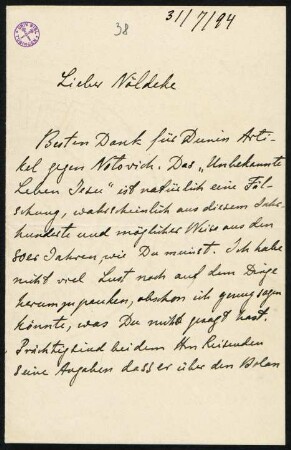 31/7/94
38
Lieber Nöldeke
Besten Dank für Deinen Arti-
kel gegen Notovich. Das „Unbekannte
Leben Jesu" ist natürlich eine Fäl-
schung, wahrscheinlich aus diesem Jahr-
hunderte und möglicher Weise aus den
80er Jahren, wie Du meinst. Ich habe
nicht viel Lust noch auf dem Dinge
herumzupauken, obschon ich genug sagen
könnte, was Du nicht gesagt hast.
Prächtig sind bei dem Hrn Reisenden
seine Angaben dass er über den Bolan